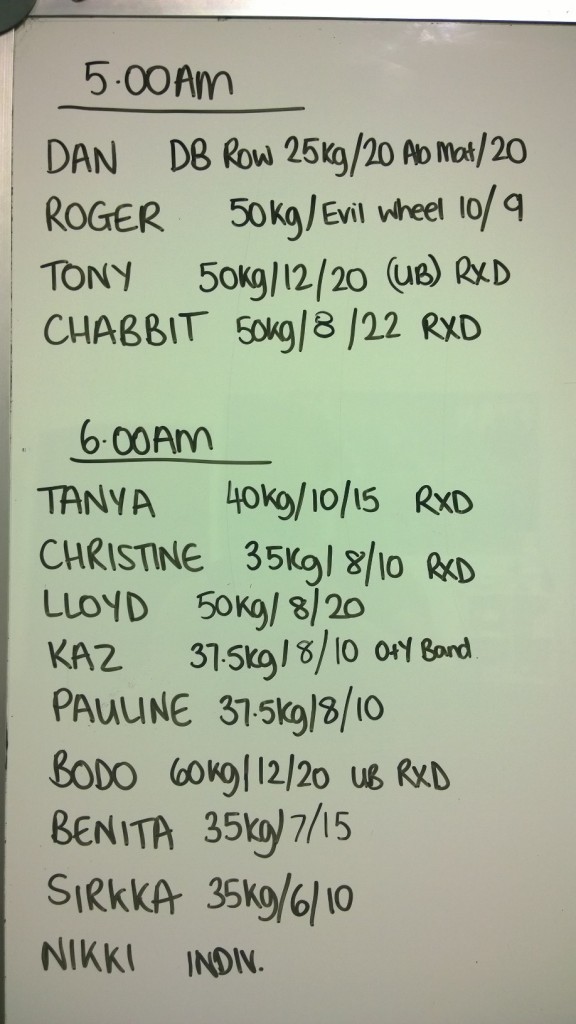 5.00AM
DAN DB Row 25kg/20 Ab Mat/20
ROGER 50kg/Evil wheel 10/9
TONY 50kg/12/20 (UB) RXD
CHABBIT 50kg/8/22 RXD
6.00AM
TANYA 40kg/10/15 RXD
CHRISTINE 35kg/8/10 RXD
LLOYD 50kg/8/20
KAZ 37.5kg/8/10 O+Y Band
PAULINE 37.5kg/8/10
BODO 60kg/12/20 UB RXD
BENITA 35kg/7/15
SIRKKA 35kg/6/10
NIKKI INDIV.